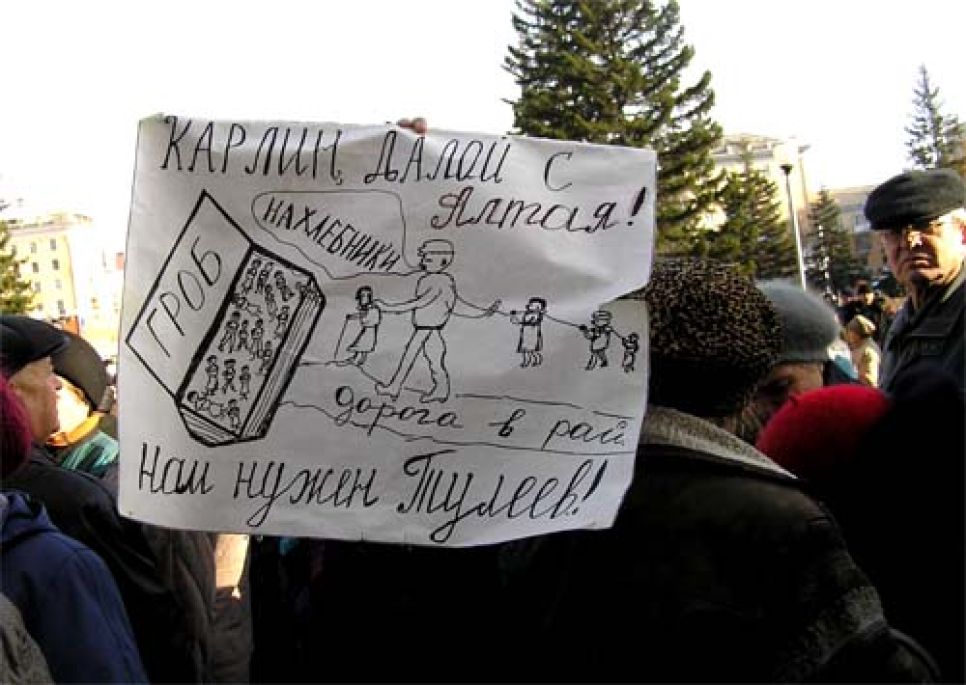 КАРЛИН, ДАЛОЙ С
Алтая!
НАХЛЕБНИКИ
ГРОБ
дорога в рай
Нам нужен Тулеев!